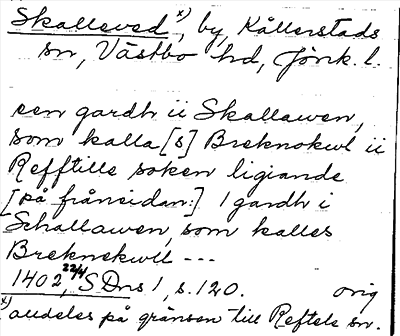 Skalleved x), by, Kållerstads
sn, Västbo hd, Jönk. l.
een gardh ii Skallawen,
som kalla[s] Breknokwl ii
Refftille soken ligiande
[på frånsidan:] 1 gardh i
Schallawen, som kalles
Breknekwll ---
1402 22/4, SDns 1, s. 120. orig
x) alldeles på gränsen till Reftels sn.